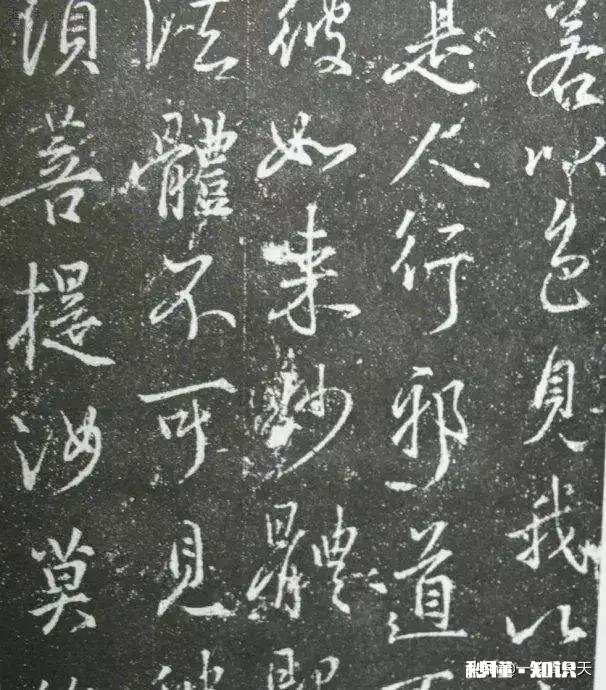 若以色見我以
是人行邪道
彼如来妙體即
法體不可見
須菩提汝莫
知识